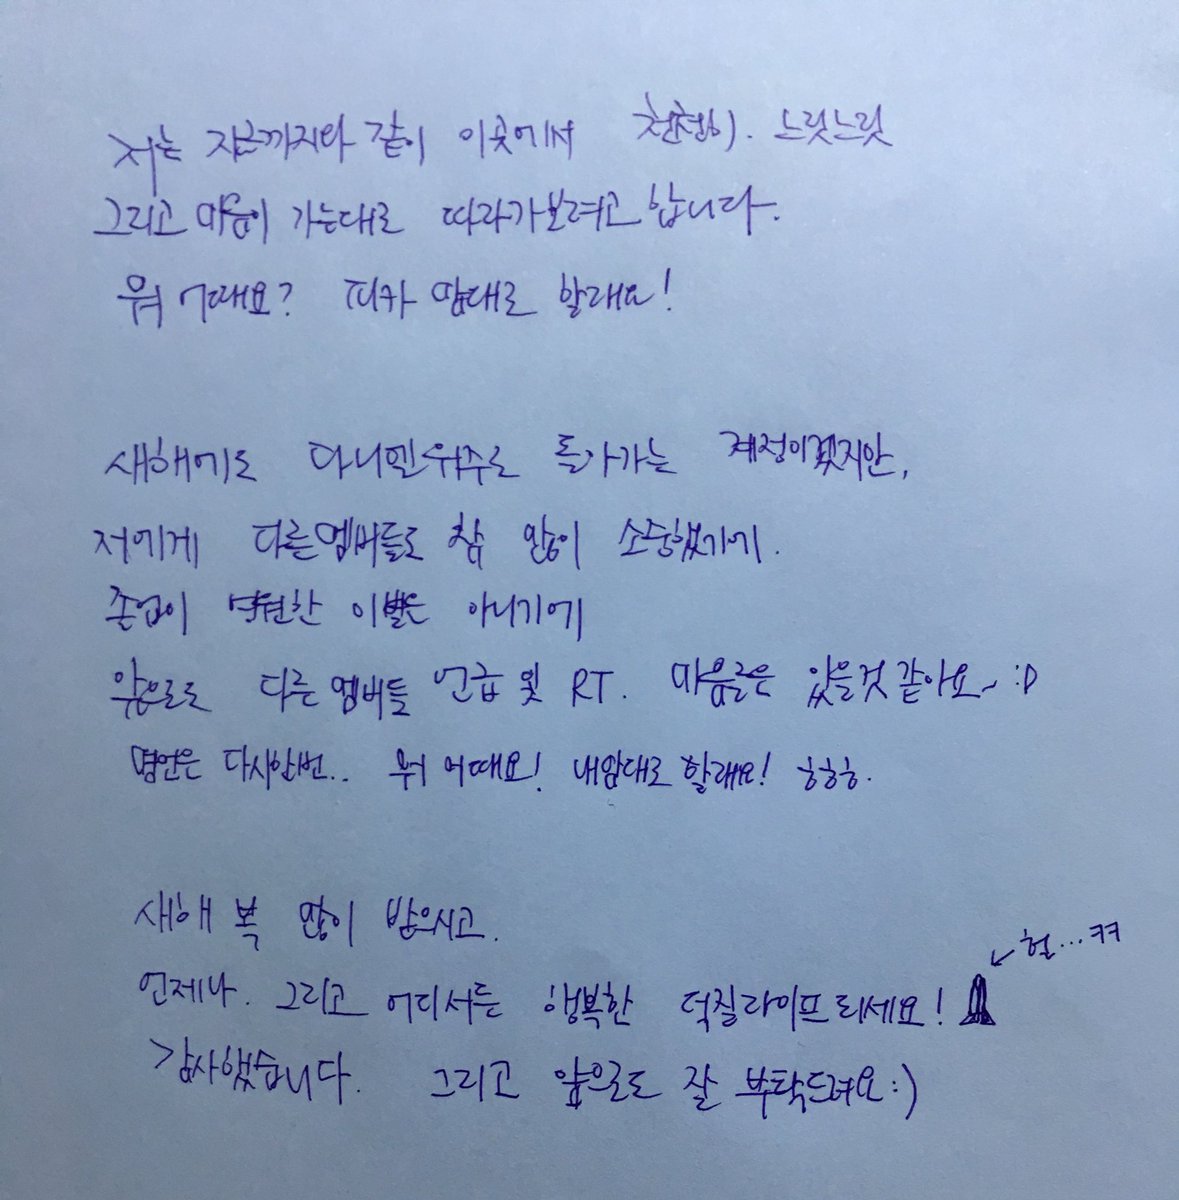 저는 지금까지와 같이 이곳에서 천천히. 느릿느릿
그리고 마음이 가는대로 따라가보려고 합니다.
뭐 어때요? 띠카 맘대로 할래요!
새해에도 다니엘위주로 돌아가는 계정이겠지만,
저에게 다른멤버들도 참 많이 소중했기에.
졸업이 영원한 이별은 아니기에
앞으로도 다른 멤버들 언급 및 RT. 마음글은 있을것 같아요~ :D
명언은 다시한번.. 뭐 어때요! 내맘대로 할래요! ㅎㅎㅎ.
새해 복 많이 받으시고.
언제나. 그리고 어디서든 행복한 덕질라이프 되세요!
↙헐...ㅋㅋ
감사했습니다. 그리고 앞으로도 잘 부탁드려요:)